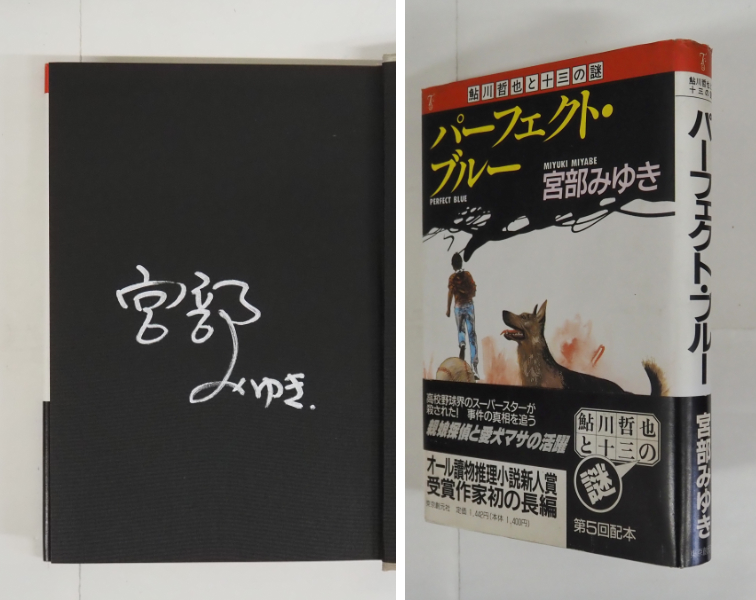 宮部
みゆき.
鮎川哲也と十三の謎
パーフェクト・
ブルー
PERFECT BLUE
MIYUKI MIYABE
宮部みゆき
高校野球界のスーパースターが
殺された! 事件の真相を追う
親娘探偵と愛犬マサの活躍
オール讀物推理小説新人賞
受賞作家初の長編
東京創元社 定価 1,442円(本体 1,400円)
鮎川哲也
と十三の
謎
第5回配本
鮎川哲也
十三の
パーフェクト・ブルー
宮部みゆき